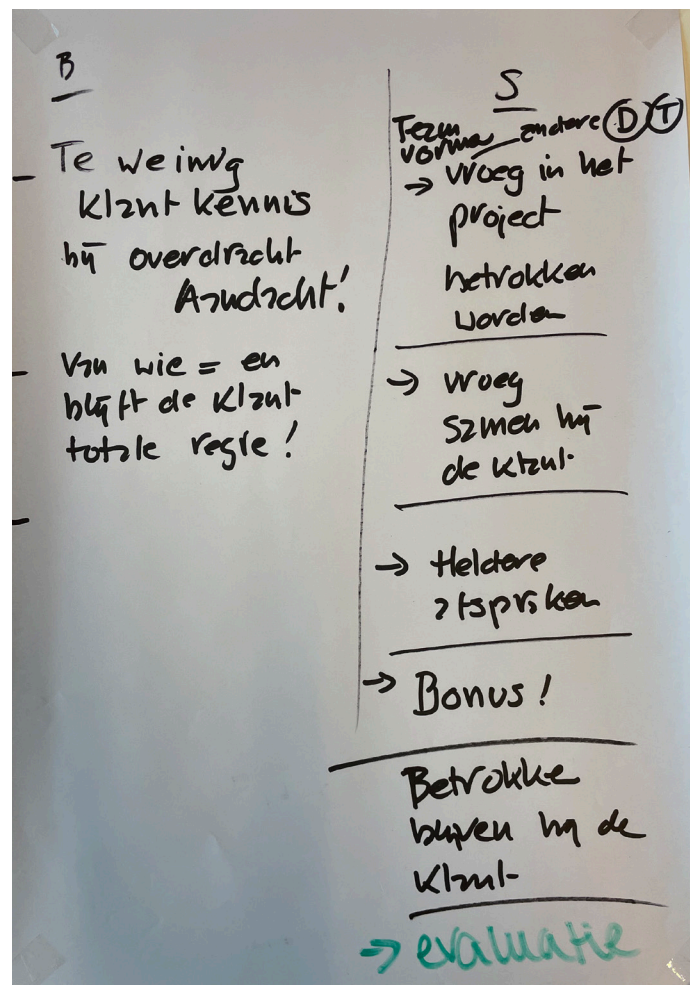 B
Te weinig
klant kennis
bij overdracht
Aandacht!
Van wie = en
blijft de klant
totale regie!
S
Team vorma andere D T
→ vroeg in het
project
betrokken
worden
→ vroeg
samen bij
de klant
→ Heldere
afspraken
→ Bonus!
Betrokke
blijven bij de
klant
→ evaluatie